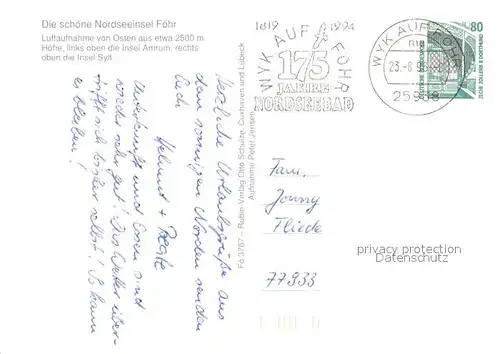 Die schöne Nordseeinsel Föhr
Luftaufnahme von Osten aus etwa 2500 m
Höhe, links oben die Insel Amrum, rechts
oben die Insel Sylt
Herzliche Urlaubsgrüße aus
dem sonnigen Norden senden
Euch
Helmut +
Unterkunft und Essen sind
wieder sehr gut! Das Wetter über-
trifft sich bisher selbst! So kann
es bleiben!
Fö 3767 – Rubin-Verlag Otto Schulze, Cuxhaven und Lübeck
Aufnahme Peter Jensen
1819 1994
WYK AUF FÖHR
175
JAHRE
NORDSEEBAD
WYK AUF FÖHR
23.-8.9
25938
80
DEUTSCHE BUNDESPOST
ZECHE ZOLLERN II DORTMUND
Fam.
Jonny
Fliede
77933
privacy protection
Datenschutz